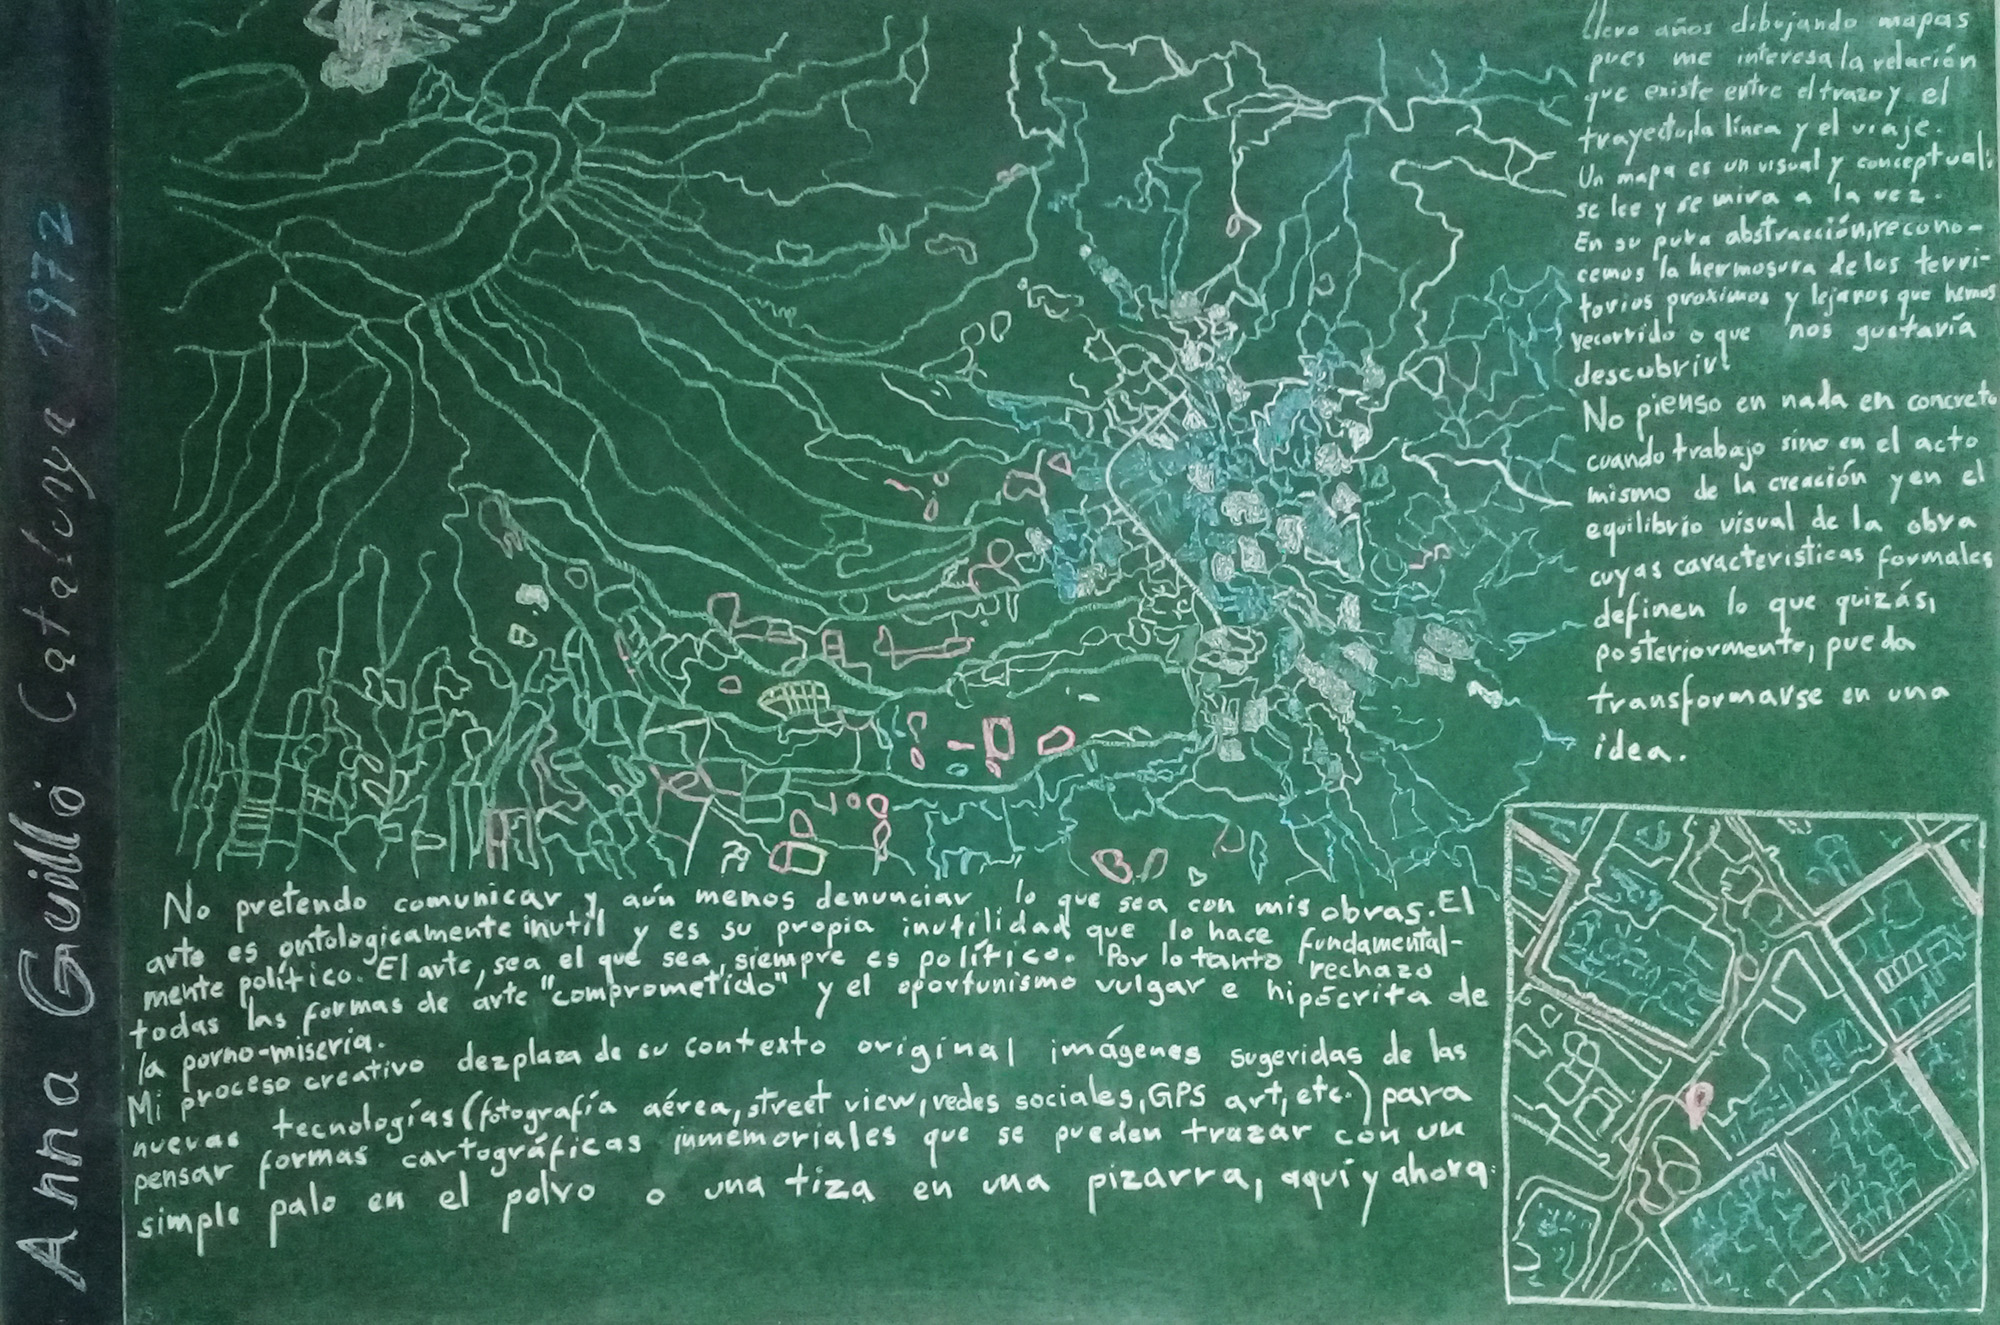 Anna Guilló Catalunya 1972
llevo años dibujando mapas
pues me interesa la relación
que existe entre el trazo y el
trayecto, la línea y el viaje.
Un mapa es un visual y conceptual;
se lee y se mira a la vez.
En su pura abstracción, recono-
cemos la hermosura de los terri-
torios proximos y lejanos que hemos
recorrido o que nos gustaría
descubrir.
No pienso en nada en concreto
cuando trabajo sino en el acto
mismo de la creación y en el
equilibrio visual de la obra
cuyas caracteristicas formales
definen lo que quizás,
posteriormente, pueda
transformarse en una
idea.
No pretendo comunicar y aún menos denunciar lo que sea con mis obras. El
arte es ontologicamente inutil y es su propia inutilidad que lo hace fundamental-
mente político. El arte, sea el que sea, siempre es político. Por lo tanto rechazo
todas las formas de arte "comprometido" y el oportunismo vulgar e hipócrita de
la porno-miseria.
Mi proceso creativo dezplaza de su contexto original imágenes sugeridas de las
nuevas tecnologías (fotografía aérea, street view, redes sociales, GPS art, etc.) para
pensar formas cartográficas inmemoriales que se pueden trazar con un
simple palo en el polvo o una tiza en una pizarra, aquí y ahora.